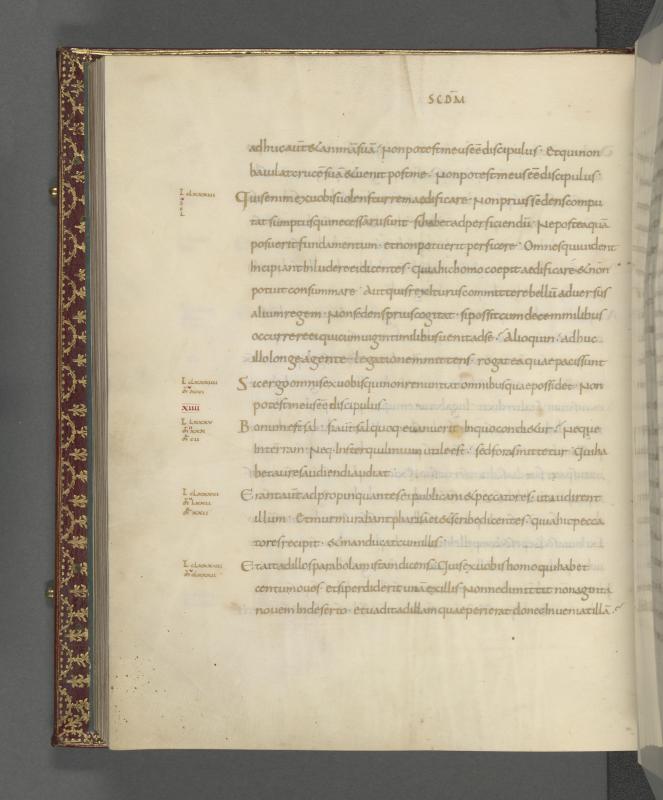 SCDM̄
adhuc aūt & animā suā · Non potest meus eē discipulus · Et qui non
baiulat crucē suā & uenit post me · Non potest meus eē discipulus·
L clxxxiii
Quis enim ex uobis uolens turrem aedificare · Non prius sedens compu
tat sumptus qui necessarii sunt · si habet ad perficiendū · Ne postea quā
posuerit fundamentum · et non potuerit perficere · Omnes qui uident
Incipiant Inludere ei dicentes · quia hic homo coepit aedificare & non
potuit consummare · Aut quis rex Iturus committere bellū aduersus
alium regem · Non sedens prius cogitat · si possit cum decem milibus
occurrere ei qui cum uiginti milibus uenit ad se · Alioquin · adhuc
illo longe agente · legationem mittens · rogat ea quae pacis sunt
L clxxxiiii
Sic ergo omnis ex uobis qui non renuntiat omnibus quae possidet · Non
XIIII
potest meus eē discipulus
L clxxxv
Bonum est sal · Si aūt sal quoq· euanuerit · In quo condi&ur · Neque
In terram · Neq· In sterquilinium utile est · sed foras mittetur · Qui ha
bet aures audiendi audiat
L clxxxvi
Erant aūt adpropinquantes ei publicani & peccatores · ut audirent
illum · Et murmurabant pharisaei & scribe dicentes · quia hic pecca
tores recipit · & manducat cum illis·
L clxxxvii
Et ait ad illos parabolam istam dicens · Quis ex uobis homo qui habet
centum oues · et si perdiderit unā ex illis · Nonne dimittit nonaginta
nouem In deserto · et uadit ad illam quae perierat donec Inueniat illā ·